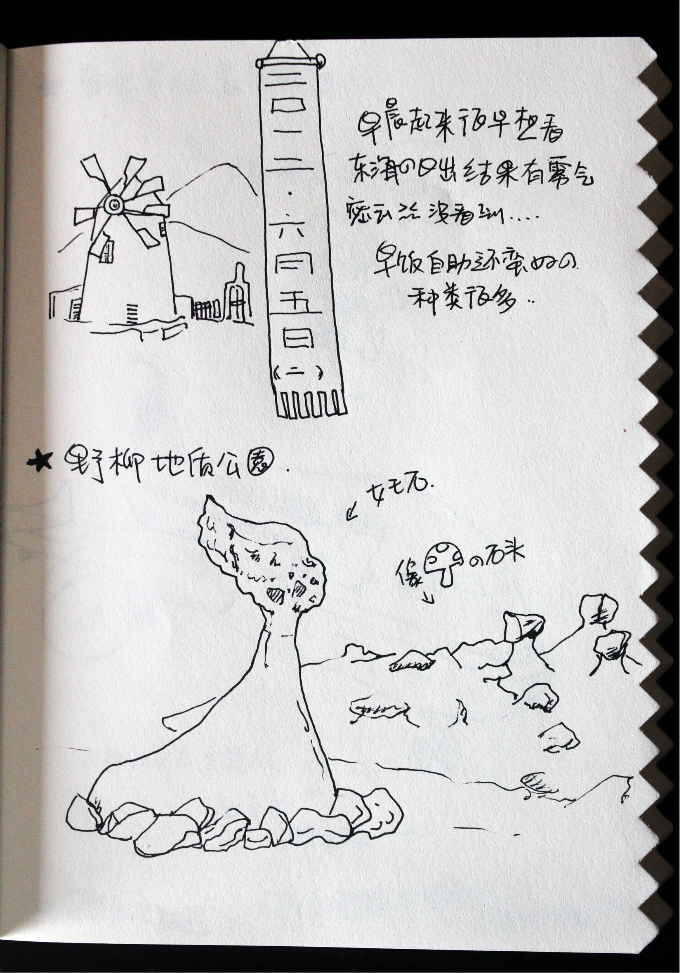 二〇一二·六月五日
(二)
早晨起来很早想看
东海の日出结果有雾气
密云 没看到....
早饭自助还蛮好の
种类很多..
★ 野柳地质公园.
女王石.
像 の石头